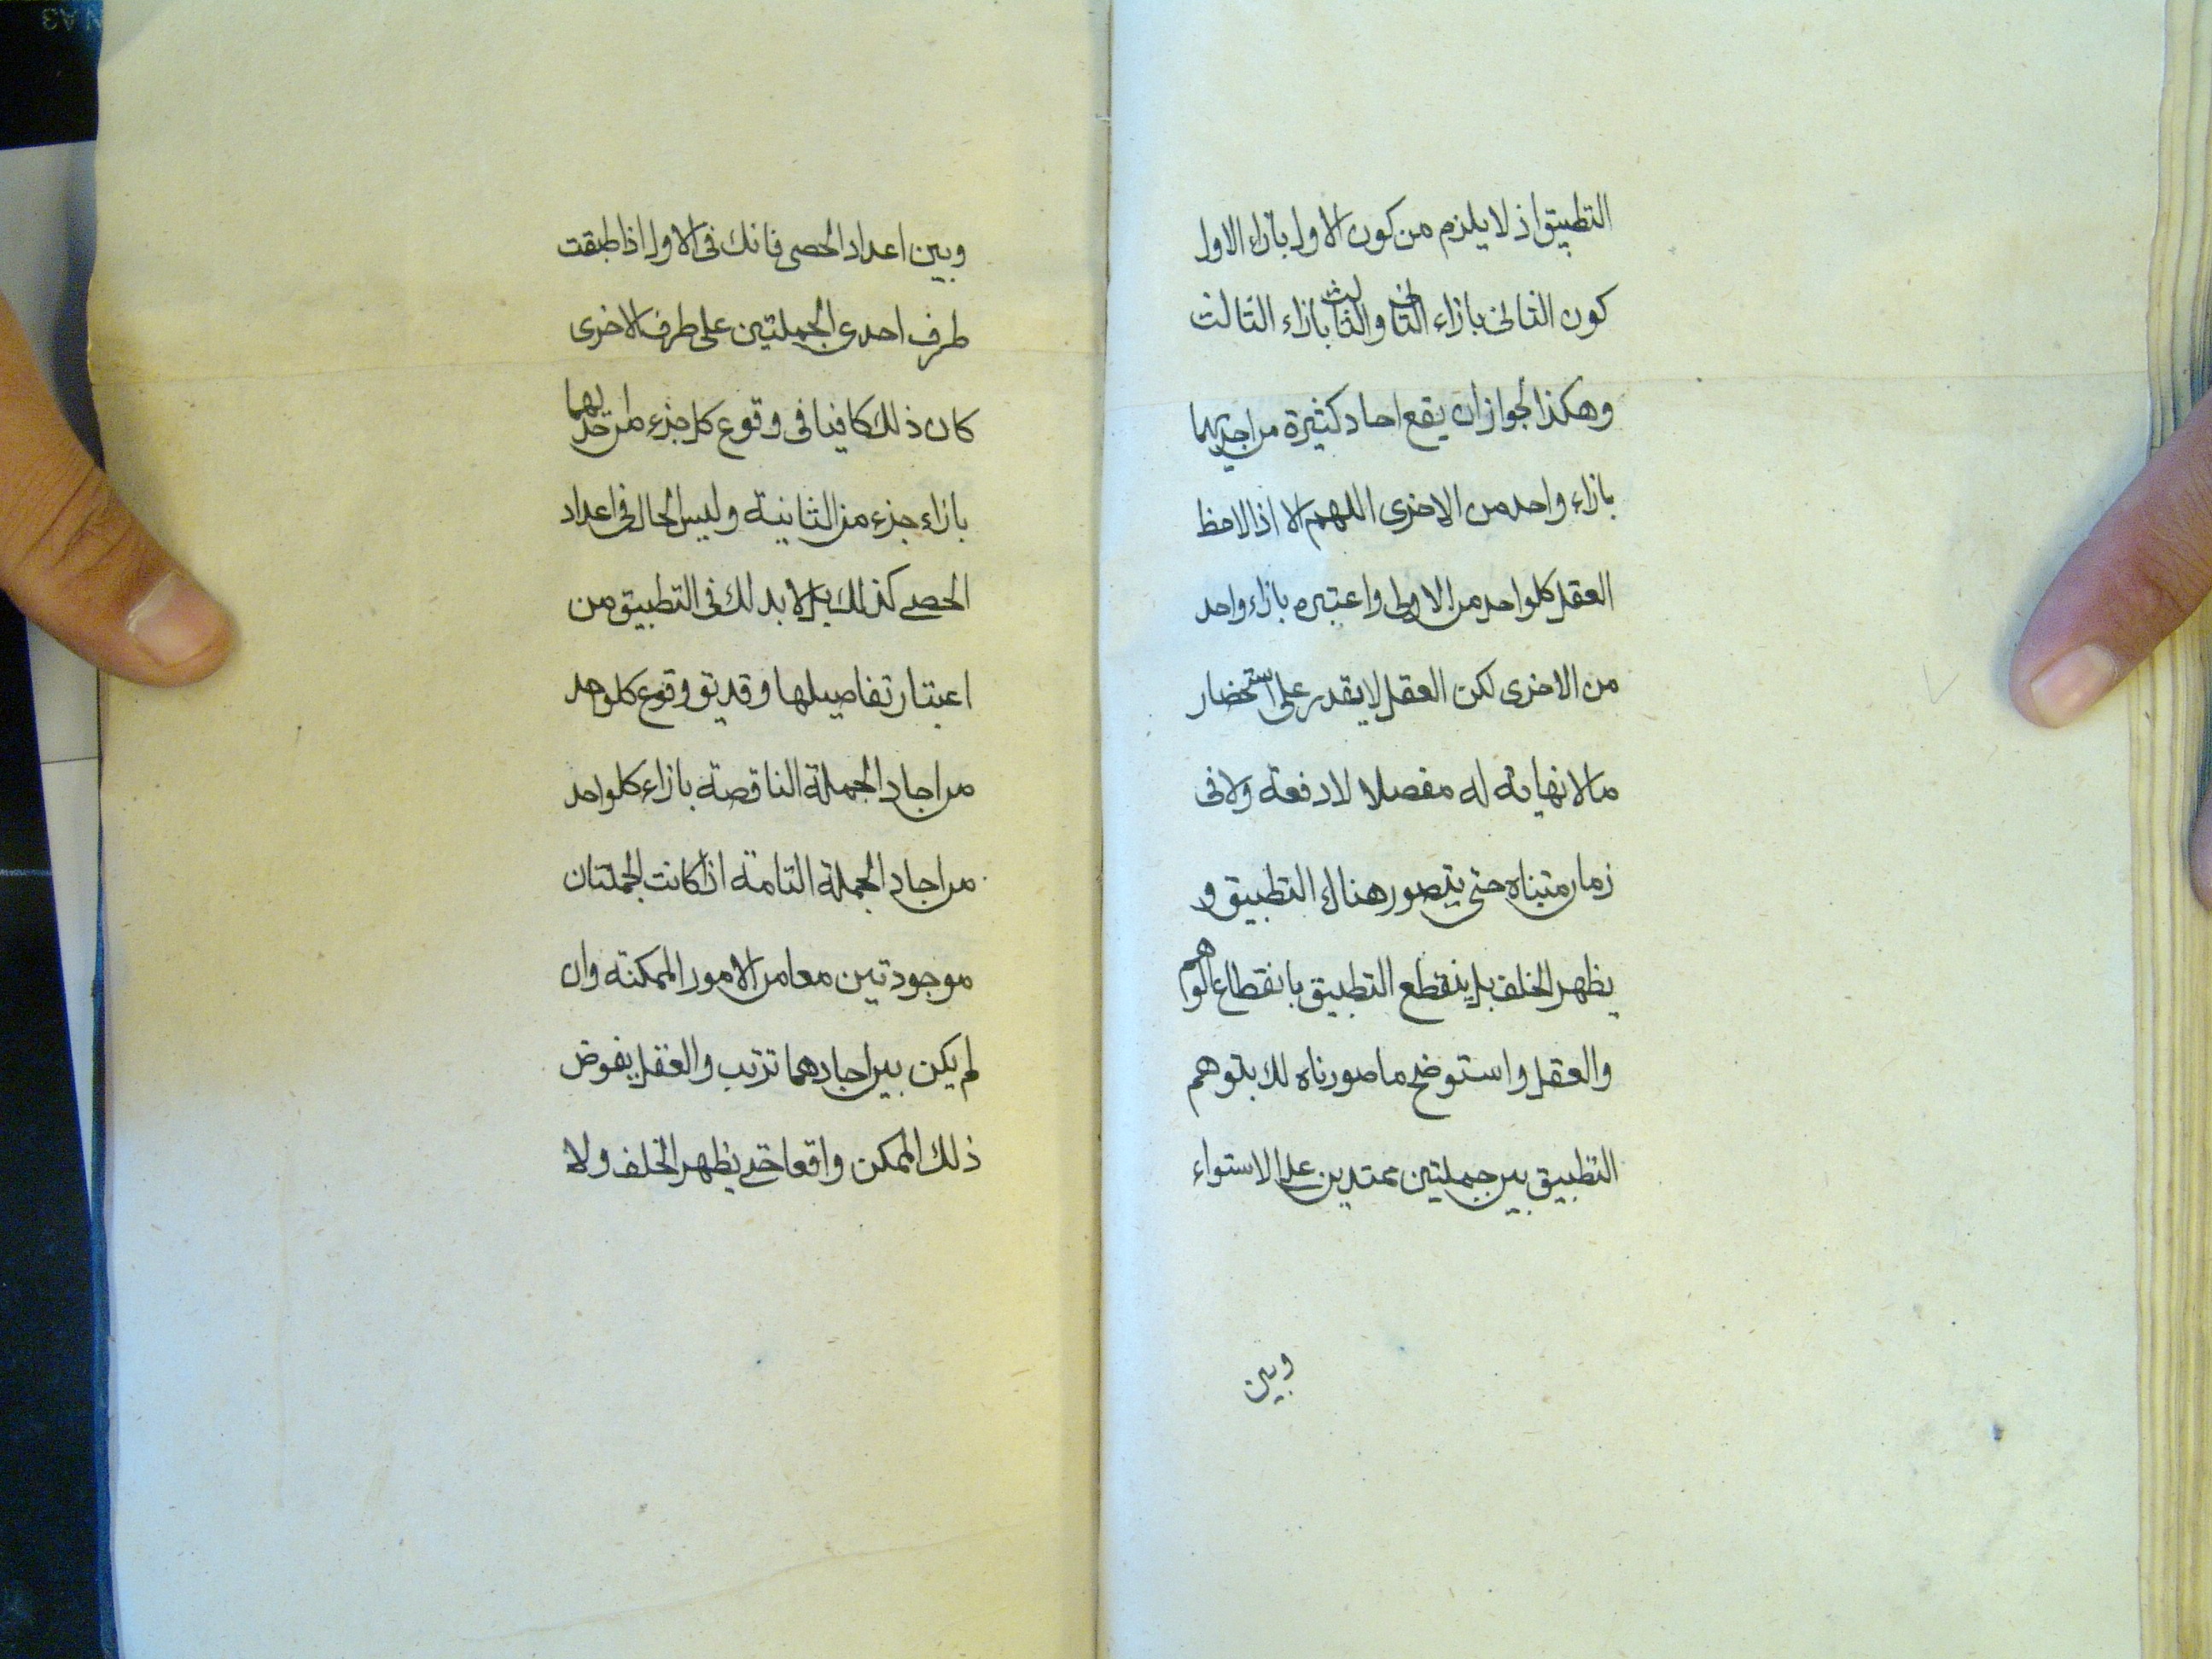 التطبيق اذ لا يلزم من كون الاول بازاء الاول
كون الثانى بازاء الثانى والثالث بازاء الثالث
وهكذا لجواز ان يقع احاد كثيرة من احديهما
بازاء واحد من الاخرى اللهم الا اذا لاحظ
العقل كل واحد من الاولى واعتبره بازاء واحد
من الاخرى لكن العقل لا يقدر على استحضار
ما لا نهاية له مفصلا لا دفعة ولا فى
زمان متناه حتى يتصور هناك التطبيق و
يظهر الخلف بل ينقطع التطبيق بانقطاع الوهم
والعقل واستوضح ما صورناه لك بتوهم
التطبيق بين جملتين ممتدين على الاستواء
وبين
وبين اعداد الحصى فانك فى الاول اذا طبقت
طرف احدى الجملتين على طرف الاخرى
كان ذلك كافيا فى وقوع كل جزء من احديهما
بازاء جزء من الثانية وليس الحال فى اعداد
الحصى كذلك بل لا بد لك فى التطبيق من
اعتبار تفاصيلها وقد يتو وقوع كل واحد
من احاد الجملة الناقصة بازاء كل واحد
من احاد الجملة التامة اذا كانت الجملتان
موجودتين معا من الامور الممكنة وان
لم يكن بين احادهما ترتب والعقل يفوض
ذلك الممكن واقعا حتى يظهر الخلف ولا